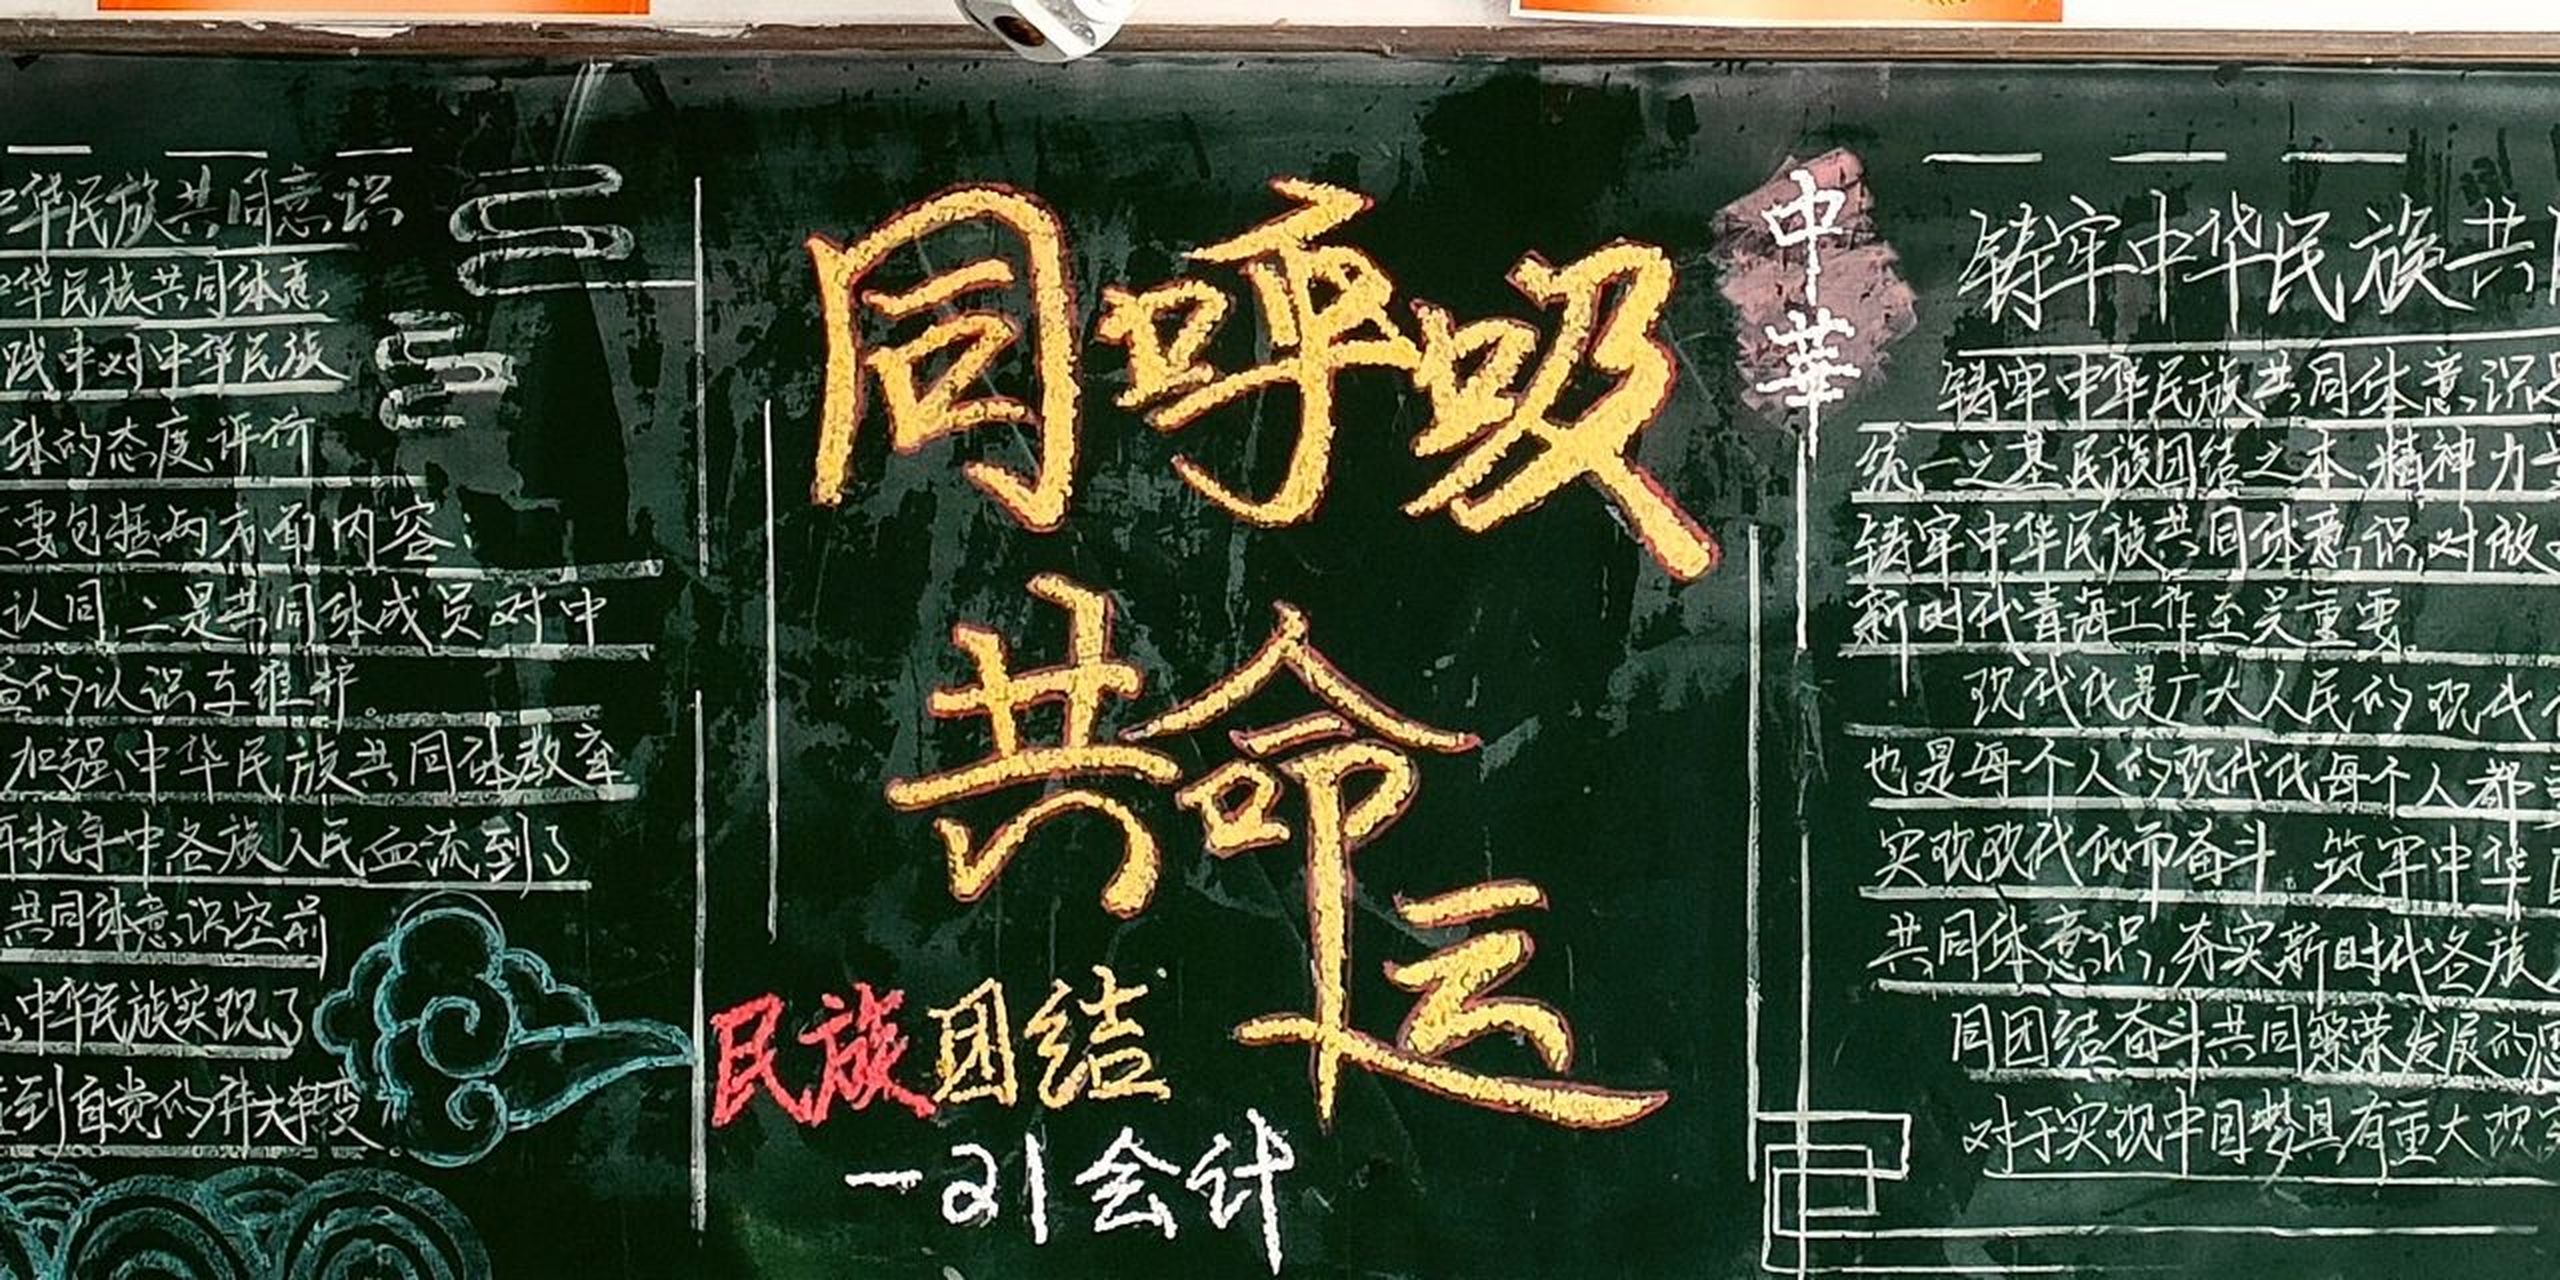 中华民族共同意识
中华民族共同体意
践中对中华民族
体的态度评价
要包括两方面内容：
认同，二是共同体成员对中
益的认识与维护。
加强中华民族共同体教育
再抗争中各族人民血流到了
共同体意识空前
中华民族实现了
到自觉的伟大转变
同呼吸
共命运
民族团结
一21会计
中華
铸牢中华民族共同
铸牢中华民族共同体意识是
统一之基民族团结之本、精神力量
铸牢中华民族共同体意识，对做好
新时代青海工作至关重要。
现代化是广大人民的现代
也是每个人的现代化每个人都
实现现代化而奋斗 筑牢中华民
共同体意识，夯实新时代各族人
同团结奋斗共同繁荣发展的思
对于实现中国梦具有重大现实